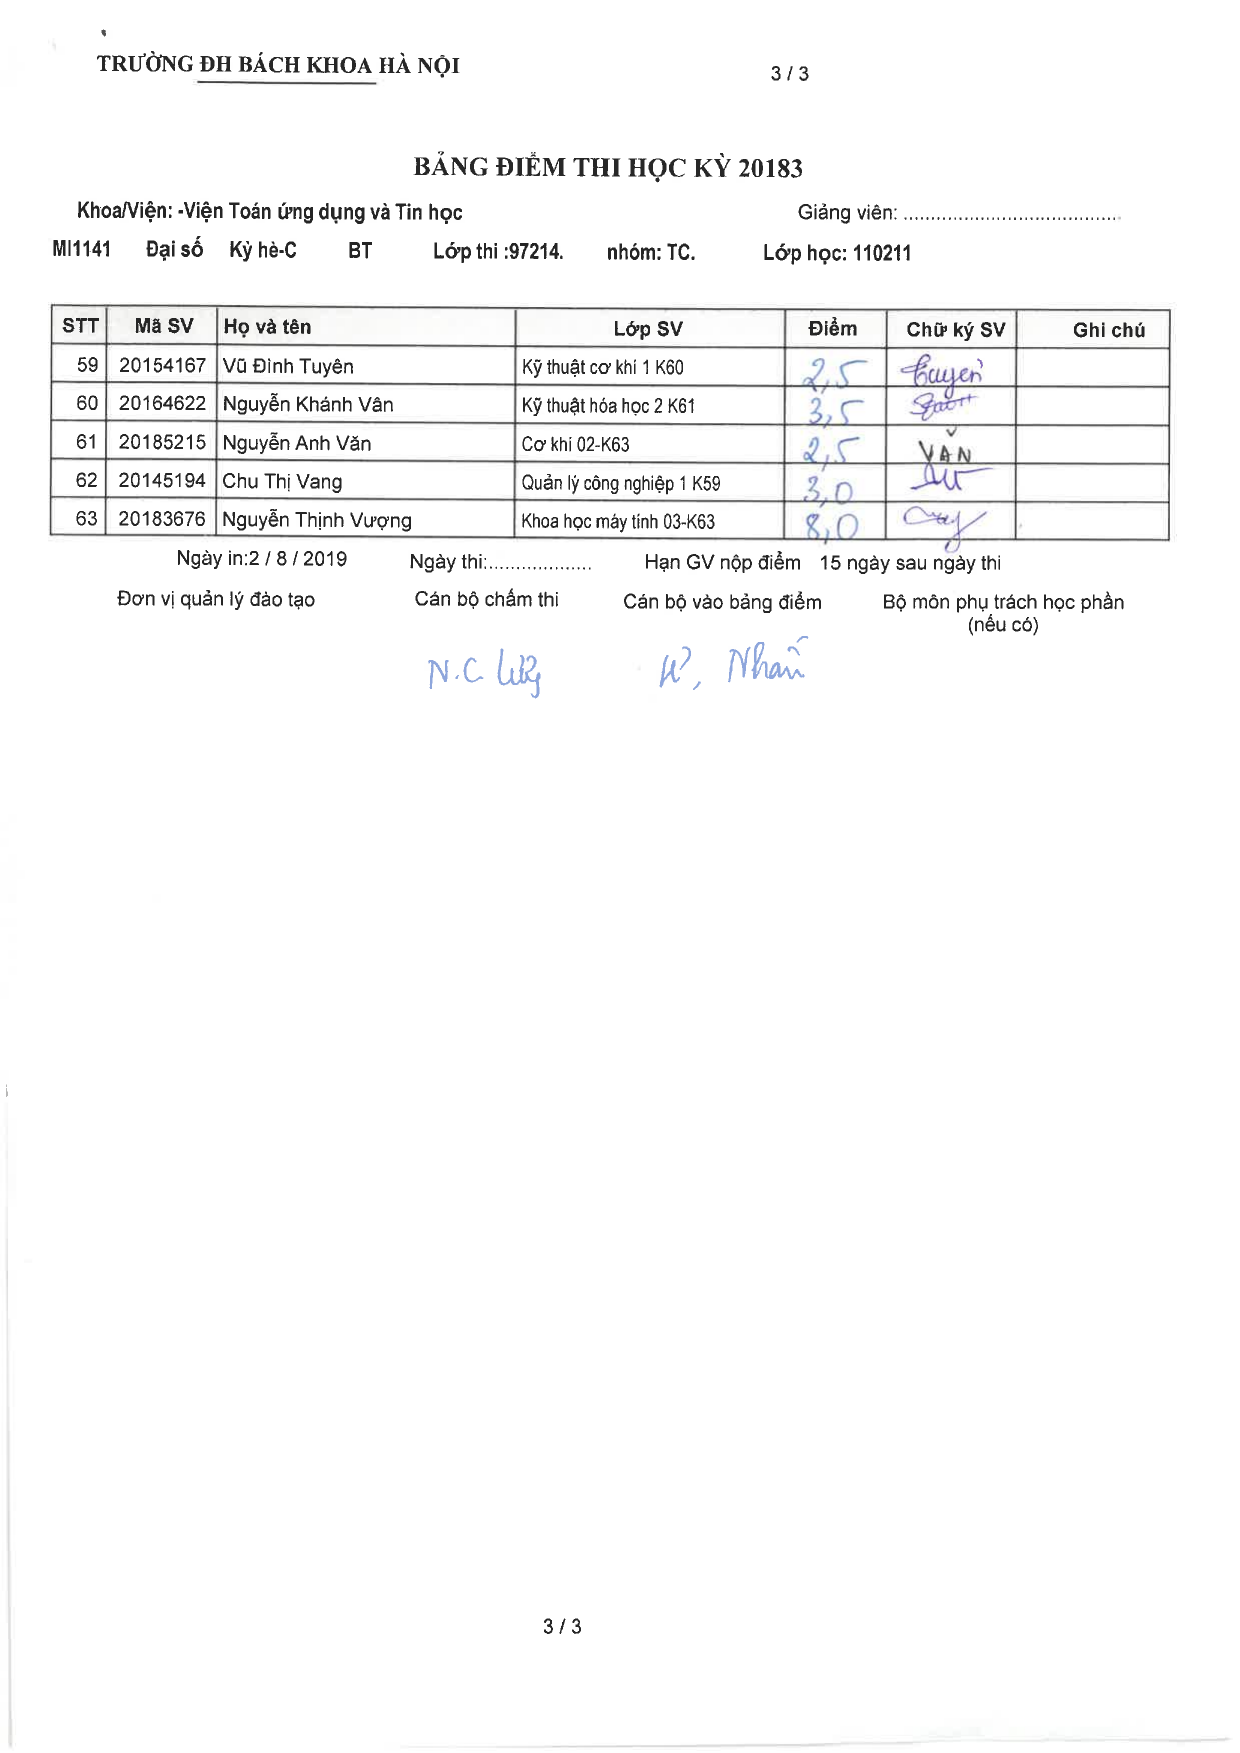 TRƯỜNG ĐH BÁCH KHOA HÀ NỘI 3 / 3
BẢNG ĐIỂM THI HỌC KỲ 20183
Khoa/Viện: -Viện Toán ứng dụng và Tin học Giảng viên: ........................................
MI1141 Đại số Kỳ hè-C BT Lớp thi :97214. nhóm: TC. Lớp học: 110211
STT Mã SV Họ và tên Lớp SV Điểm Chữ ký SV Ghi chú
59 20154167 Vũ Đình Tuyên Kỹ thuật cơ khí 1 K60 2,5 tuyên
60 20164622 Nguyễn Khánh Vân Kỹ thuật hóa học 2 K61 3,5
61 20185215 Nguyễn Anh Văn Cơ khí 02-K63 2,5 VĂN
62 20145194 Chu Thị Vang Quản lý công nghiệp 1 K59 3,0
63 20183676 Nguyễn Thịnh Vượng Khoa học máy tính 03-K63 8,0
Ngày in:2 / 8 / 2019 Ngày thi:................... Hạn GV nộp điểm 15 ngày sau ngày thi
Đơn vị quản lý đào tạo Cán bộ chấm thi Cán bộ vào bảng điểm Bộ môn phụ trách học phần
(nếu có)
N.C Nhân
3 / 3